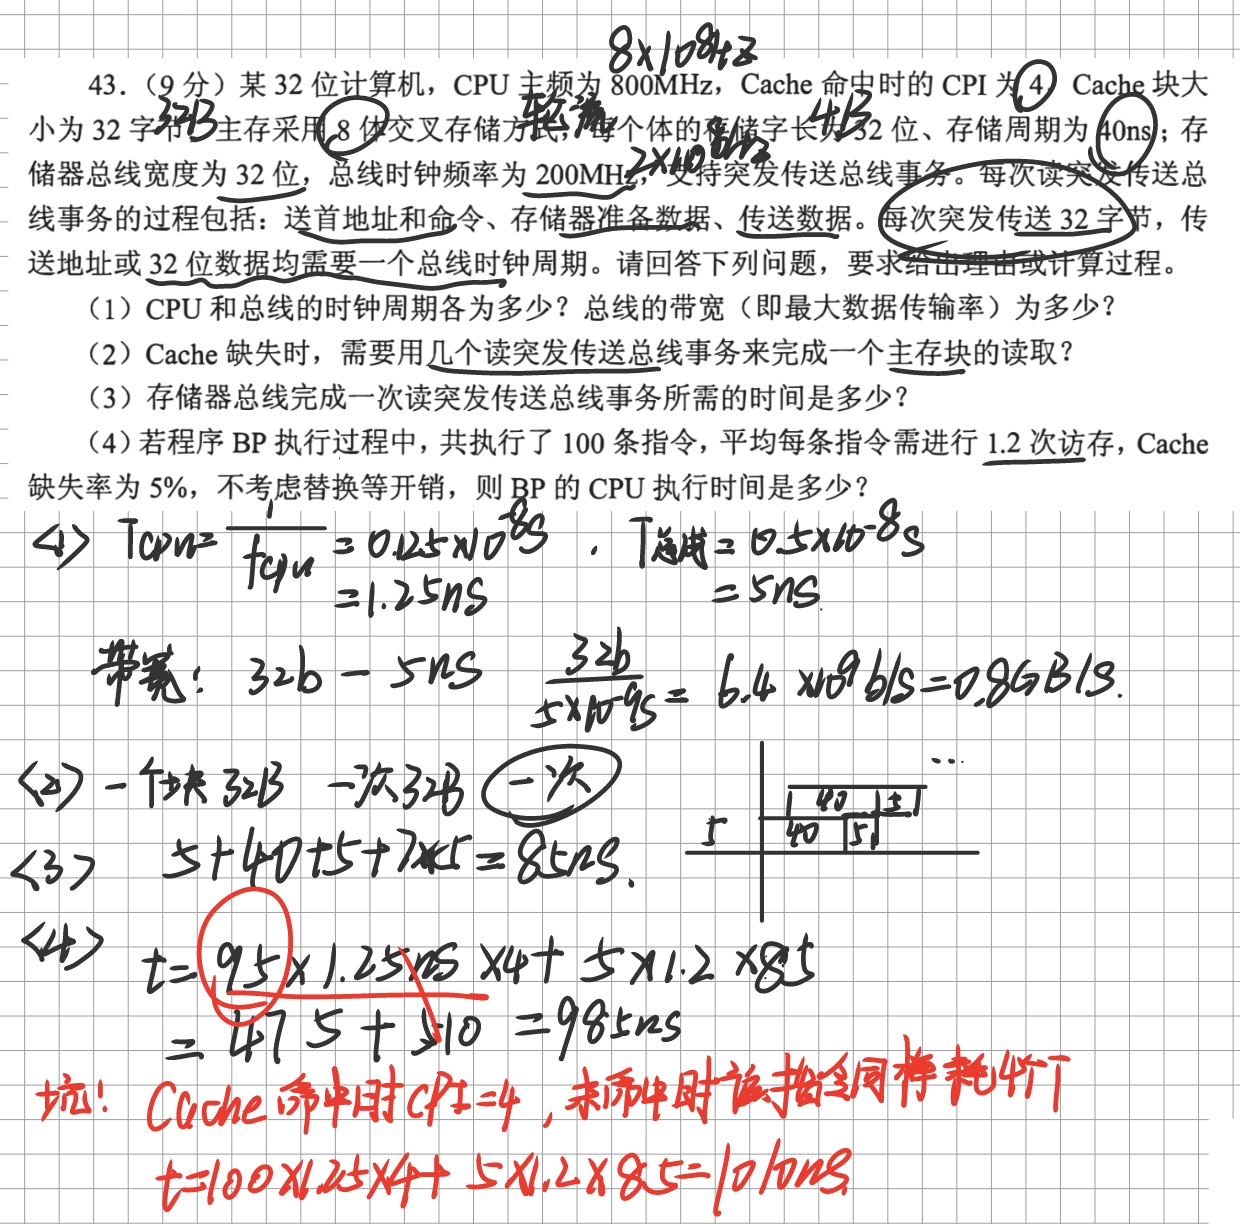 8×10⁸Hz
43.（9 分）某 32 位计算机，CPU 主频为 800MHz，Cache 命中时的 CPI 为 4，Cache 块大
32B 轮流 4B
小为 32 字节；主存采用 8 体交叉存储方式，每个体的存储字长为 32 位、存储周期为 40ns；存
2×10⁸Hz
储器总线宽度为 32 位，总线时钟频率为 200MHz，支持突发传送总线事务。每次读突发传送总
线事务的过程包括：送首地址和命令、存储器准备数据、传送数据。每次突发传送 32 字节，传
送地址或 32 位数据均需要一个总线时钟周期。请回答下列问题，要求给出理由或计算过程。
（1）CPU 和总线的时钟周期各为多少？总线的带宽（即最大数据传输率）为多少？
（2）Cache 缺失时，需要用几个读突发传送总线事务来完成一个主存块的读取？
（3）存储器总线完成一次读突发传送总线事务所需的时间是多少？
（4）若程序 BP 执行过程中，共执行了 100 条指令，平均每条指令需进行 1.2 次访存，Cache
缺失率为 5%，不考虑替换等开销，则 BP 的 CPU 执行时间是多少？
<1> Tcpu = 1/fcpu = 0.125×10⁻⁸s . T总线 = 0.5×10⁻⁸s
= 1.25ns = 5ns
带宽: 32b — 5ns 32b/5×10⁻⁹s = 6.4×10⁹b/s = 0.8GB/s.
<2> 一个块32B 一次32B 一次
...
40 5
5 40 5
<3> 5+40+5+7×5=85ns.
<4> t= 95×1.25ns×4+ 5×1.2×85
= 475+510 =985ns
坑! Cache命中时CPI=4, 未命中时该指令同样耗4个T
t=100×1.25×4+ 5×1.2×85=1010ns